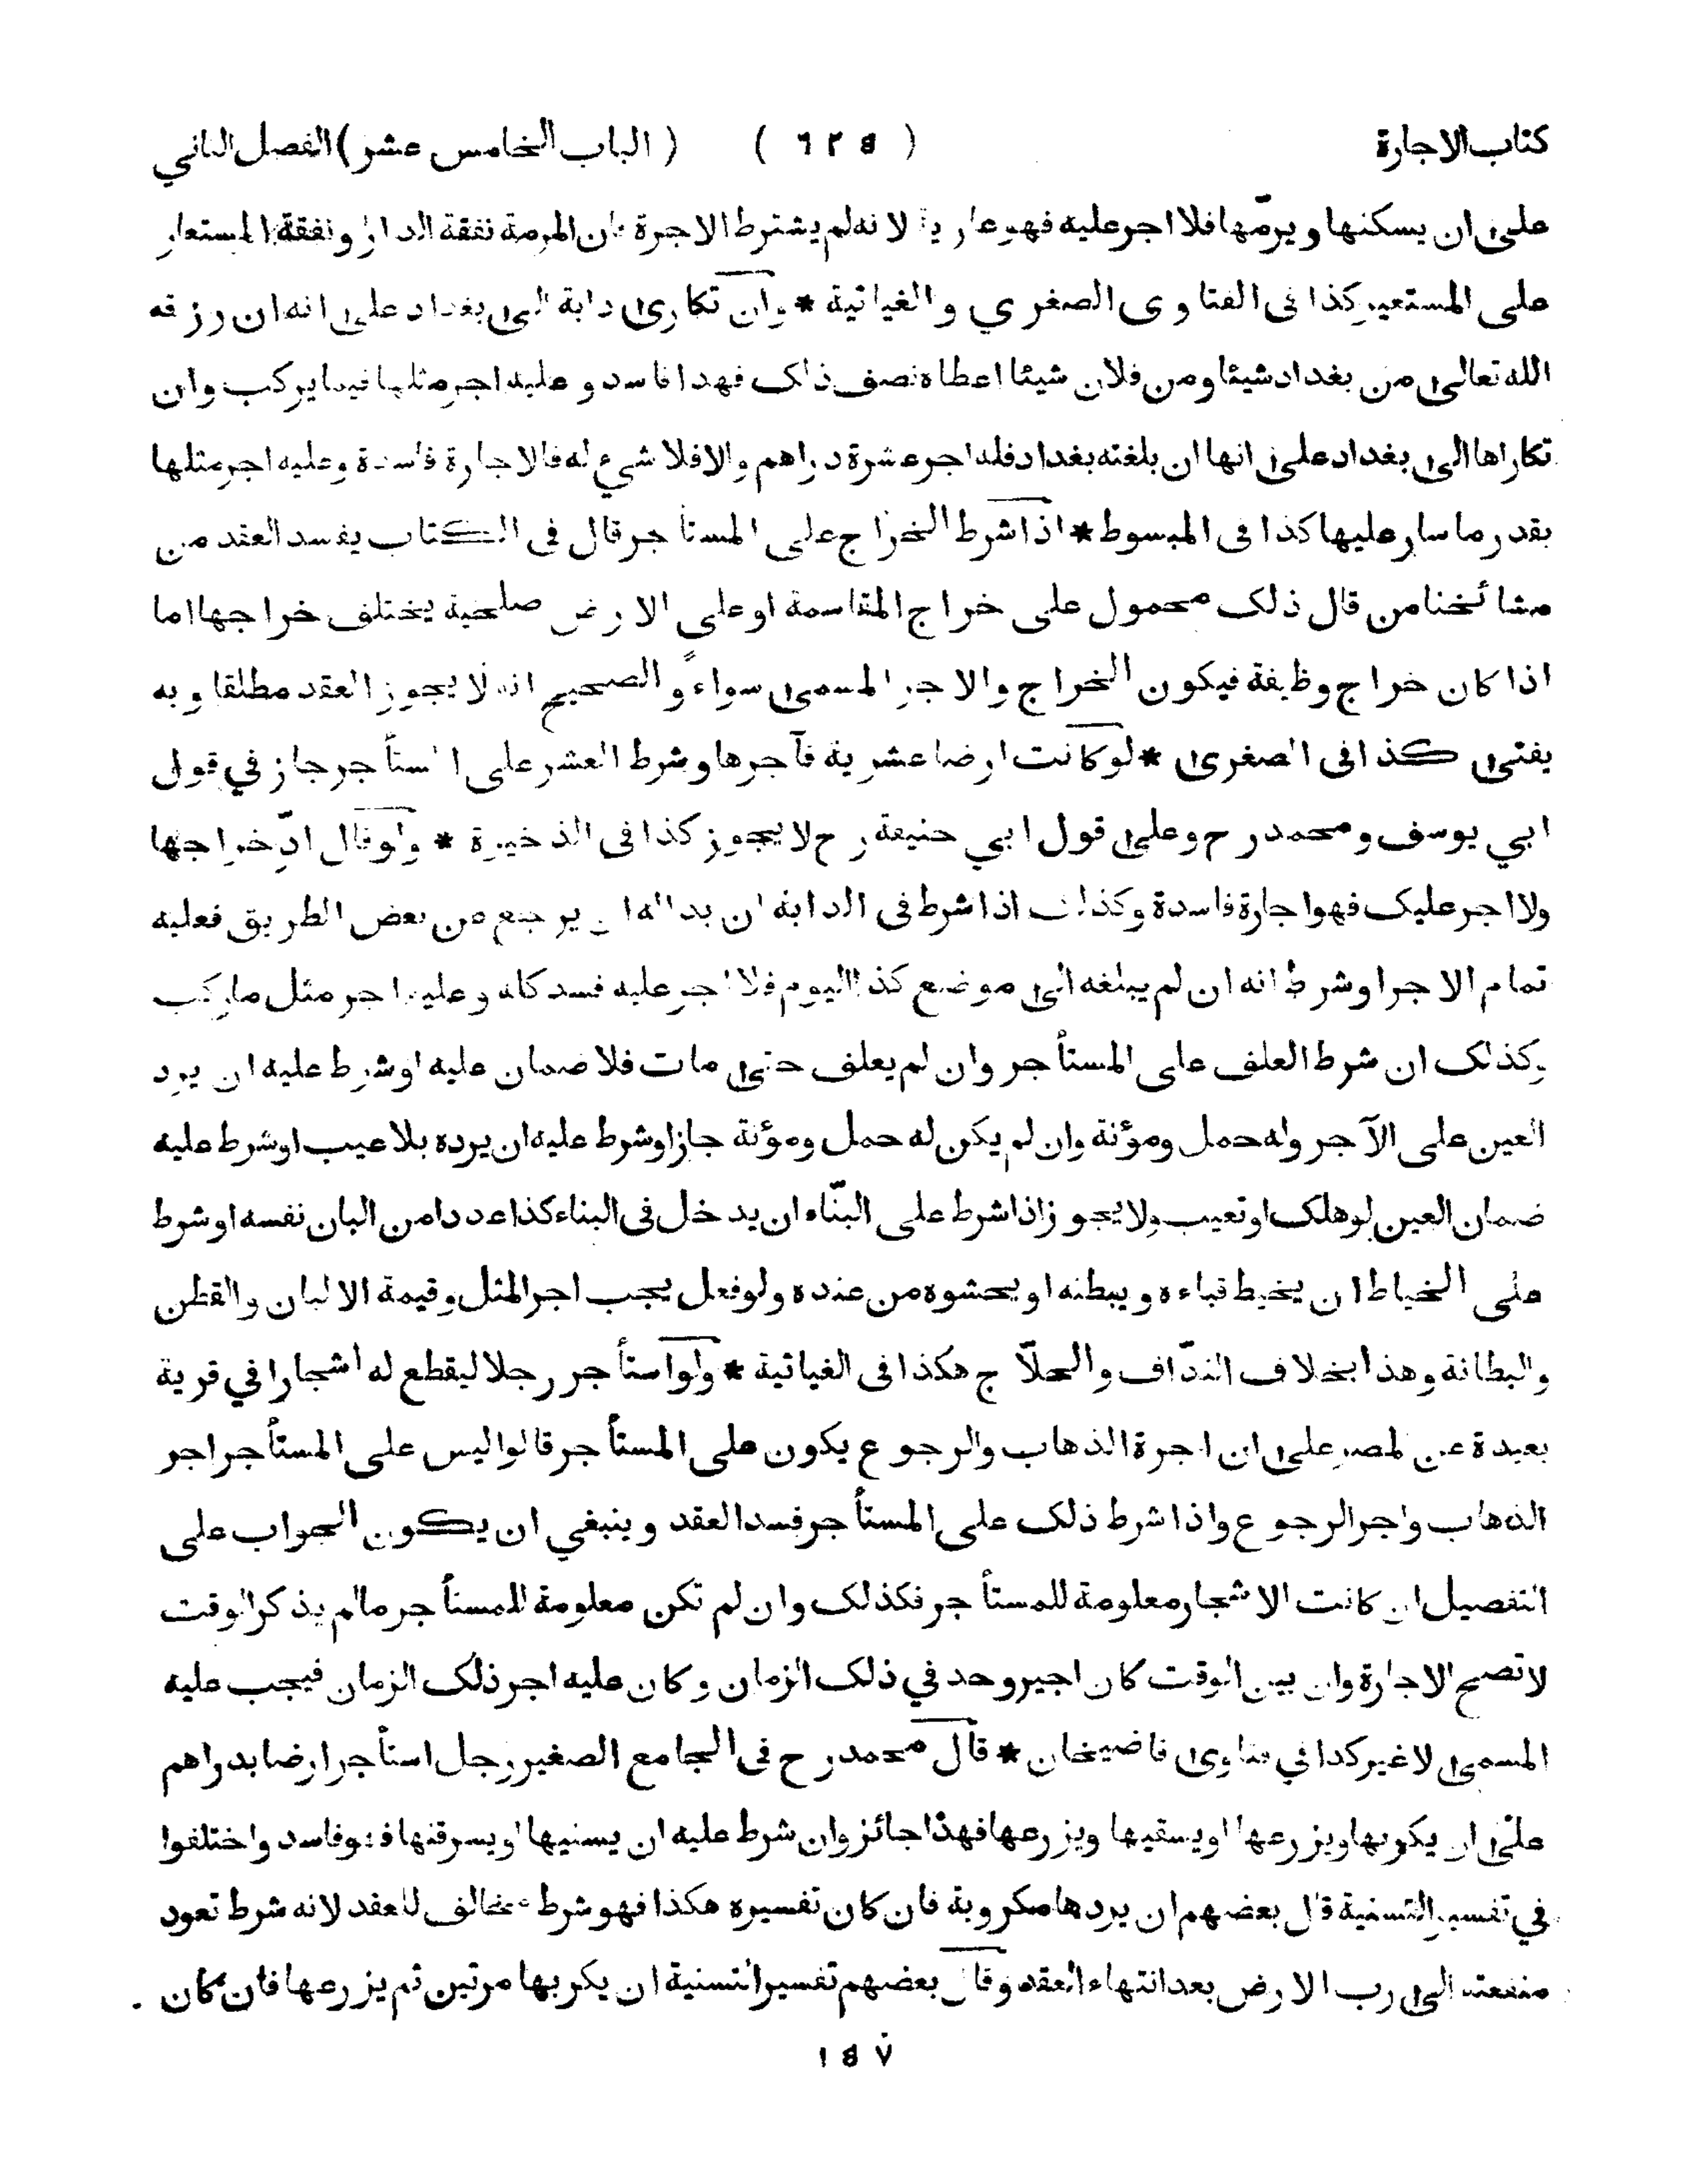 كتاب الاجارة ( ٦٢٥ ) ( الباب الخامس عشر ) الفصل الثاني
على ان يسكنها ويرمّها فلا اجر عليه فهو عارية لانه لم يشترط الاجرة فان المرمة نفقة الدار ونفقة المستعار
على المستعير كذا فى الفتاوى الصغرى والغياثية * وان تكارى دابة الى بغداد على انه ان رزقه
الله تعالى من بغداد شيئا ومن فلان شيئا اعطاه نصف ذلك فهذا فاسد وعليه اجر مثلها فيما يركب وان
تكاراها الى بغداد على انها ان بلغته بغداد فله اجر عشرة دراهم والا فلا شيء له فالاجارة فاسدة وعليه اجر مثلها
بقدر ما سار عليها كذا فى المبسوط * اذا شرط الخراج على المستأجر قال فى الكتاب يفسد العقد من
مشائخنا من قال ذلك محمول على خراج المقاسمة او على الارض صلحية يختلف خراجها اما
اذا كان خراج وظيفة فيكون الخراج والاجر المسمى سواءً والصحيح انه لا يجوز العقد مطلقا وبه
يفتى كذا فى الصغرى * لو كانت ارضا عشرية فآجرها وشرط العشر على المستأجر جاز في قول
ابي يوسف ومحمد رح وعلى قول ابي حنيفة رح لا يجوز كذا فى الذخيرة * ولو قال ادّ خراجها
ولا اجر عليك فهو اجارة فاسدة وكذلك اذا شرط فى الدابة ان بدا له ان يرجع من بعض الطريق فعليه
تمام الاجر او شرط انه ان لم يبلغه الى موضع كذا اليوم فلا اجر عليه فسد كله وعليه اجر مثل ما ركب
وكذلك ان شرط العلف على المستأجر وان لم يعلف حتى مات فلا ضمان عليه او شرط عليه ان يرد
العين على الآجر وله حمل ومؤنة وان لم يكن له حمل ومؤنة جاز او شرط عليه ان يرده بلا عيب او شرط عليه
ضمان العين لو هلك او تعيب ولا يجوز اذا شرط على البنّاء ان يدخل فى البناء كذا عددا من البان نفسه او شرط
على الخياط ان يخيط قباءه ويبطنه او يحشوه من عنده ولو فعل يجب اجر المثل وقيمة الالبان والقطن
والبطانة وهذا بخلاف الندّاف والحلّاج هكذا فى الغياثية * ولو استأجر رجلا ليقطع له اشجارا في قرية
بعيدة عن لمصر على ان اجرة الذهاب والرجوع يكون على المستأجر قالوا ليس على المستأجر اجر
الذهاب واجر الرجوع واذا شرط ذلك على المستأجر فسد العقد وينبغي ان يكون الجواب على
التفصيل ان كانت الاشجار معلومة للمستأجر فكذلك وان لم تكن معلومة للمستأجر ما لم يذكر الوقت
لا تصح الاجارة وان بين الوقت كان اجير وحد في ذلك الزمان وكان عليه اجر ذلك الزمان فيجب عليه
المسمى لا غير كذا في فتاوى قاضيخان * قال محمد رح فى الجامع الصغير رجل استأجر ارضا بدراهم
على ان يكربها ويزرعها او يسقيها ويزرعها فهذا جائز وان شرط عليه ان يسنيها او يسرقنها فهو فاسد واختلفوا
في تفسير التسنية قال بعضهم ان يردها مكروبة فان كان تفسيره هكذا فهو شرط مخالف للعقد لانه شرط تعود
منفعته الى رب الارض بعد انتهاء العقد وقال بعضهم تفسير التسنية ان يكربها مرتين ثم يزرعها فان كان
١٥٧